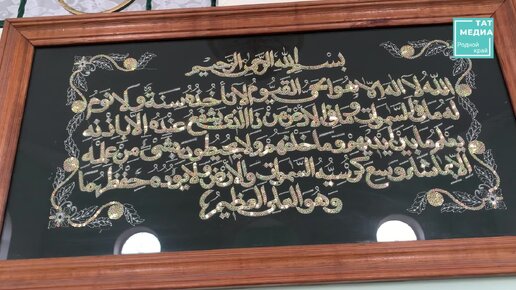 ТАТ
МЕДИА
Родной
край
بسم الله الرحمن الرحيم
الله لا اله الا هو الحي القيوم لا تأخذه سنة ولا نوم
له ما في السموات وما في الارض من ذا الذي يشفع عنده الا باذنه
يعلم ما بين ايديهم وما خلفهم ولا يحيطون بشيء من علمه
الا بما شاء وسع كرسيه السموات والارض ولا يؤده حفظهما
وهو العلي العظيم